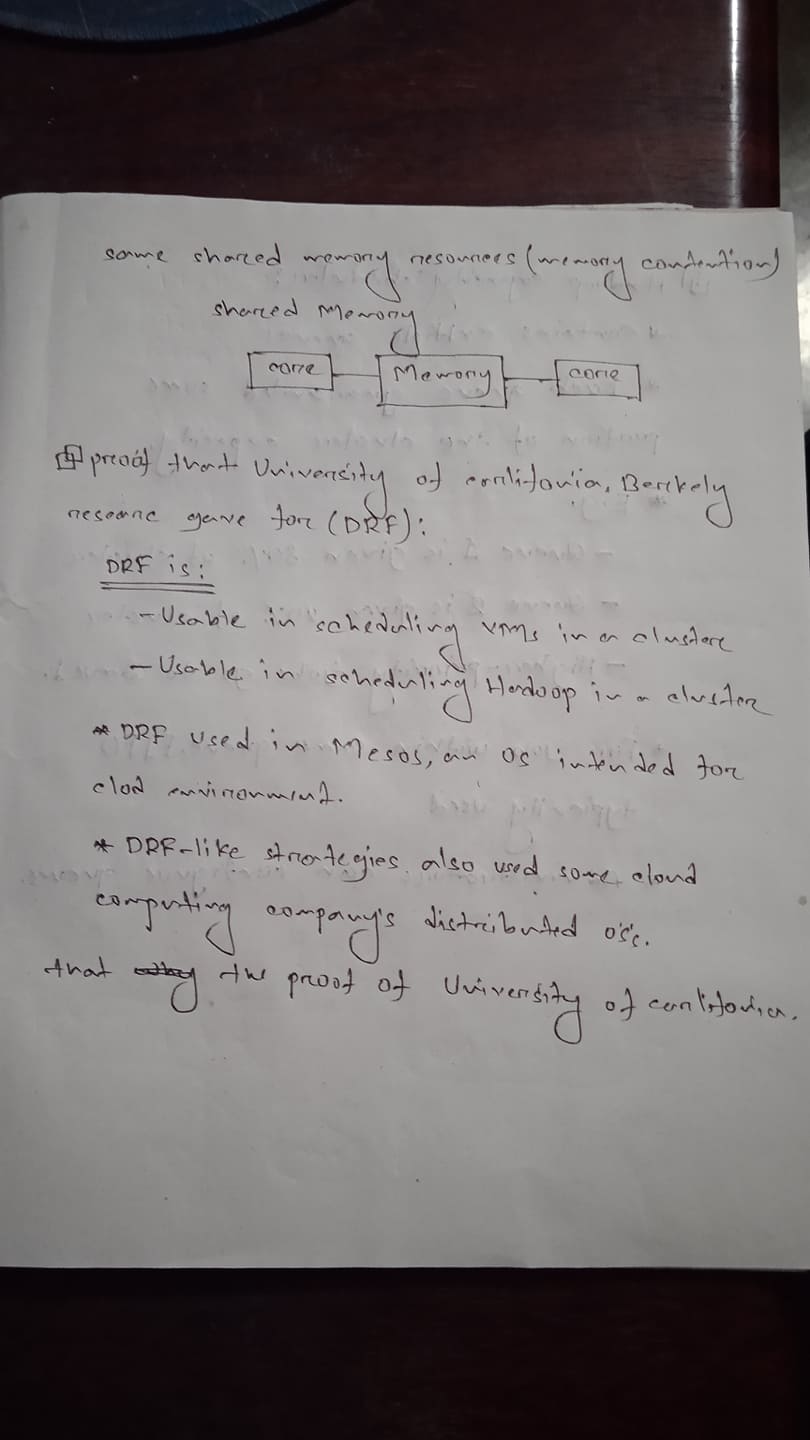 same shared memory resources (memory contention)
shared Memory
core Memory core
proof that University of califonia, Berkely
gave for (DRF):
DRF is:
- Usable in scheduling VMs in a cluster
- Usable in scheduling Hadoop in a cluster
* DRF used in Mesos, an OS intended for
clod environment.
* DRF-like strategies also used some cloud
computing company's distributed os's.
that the proof of University of califonia.